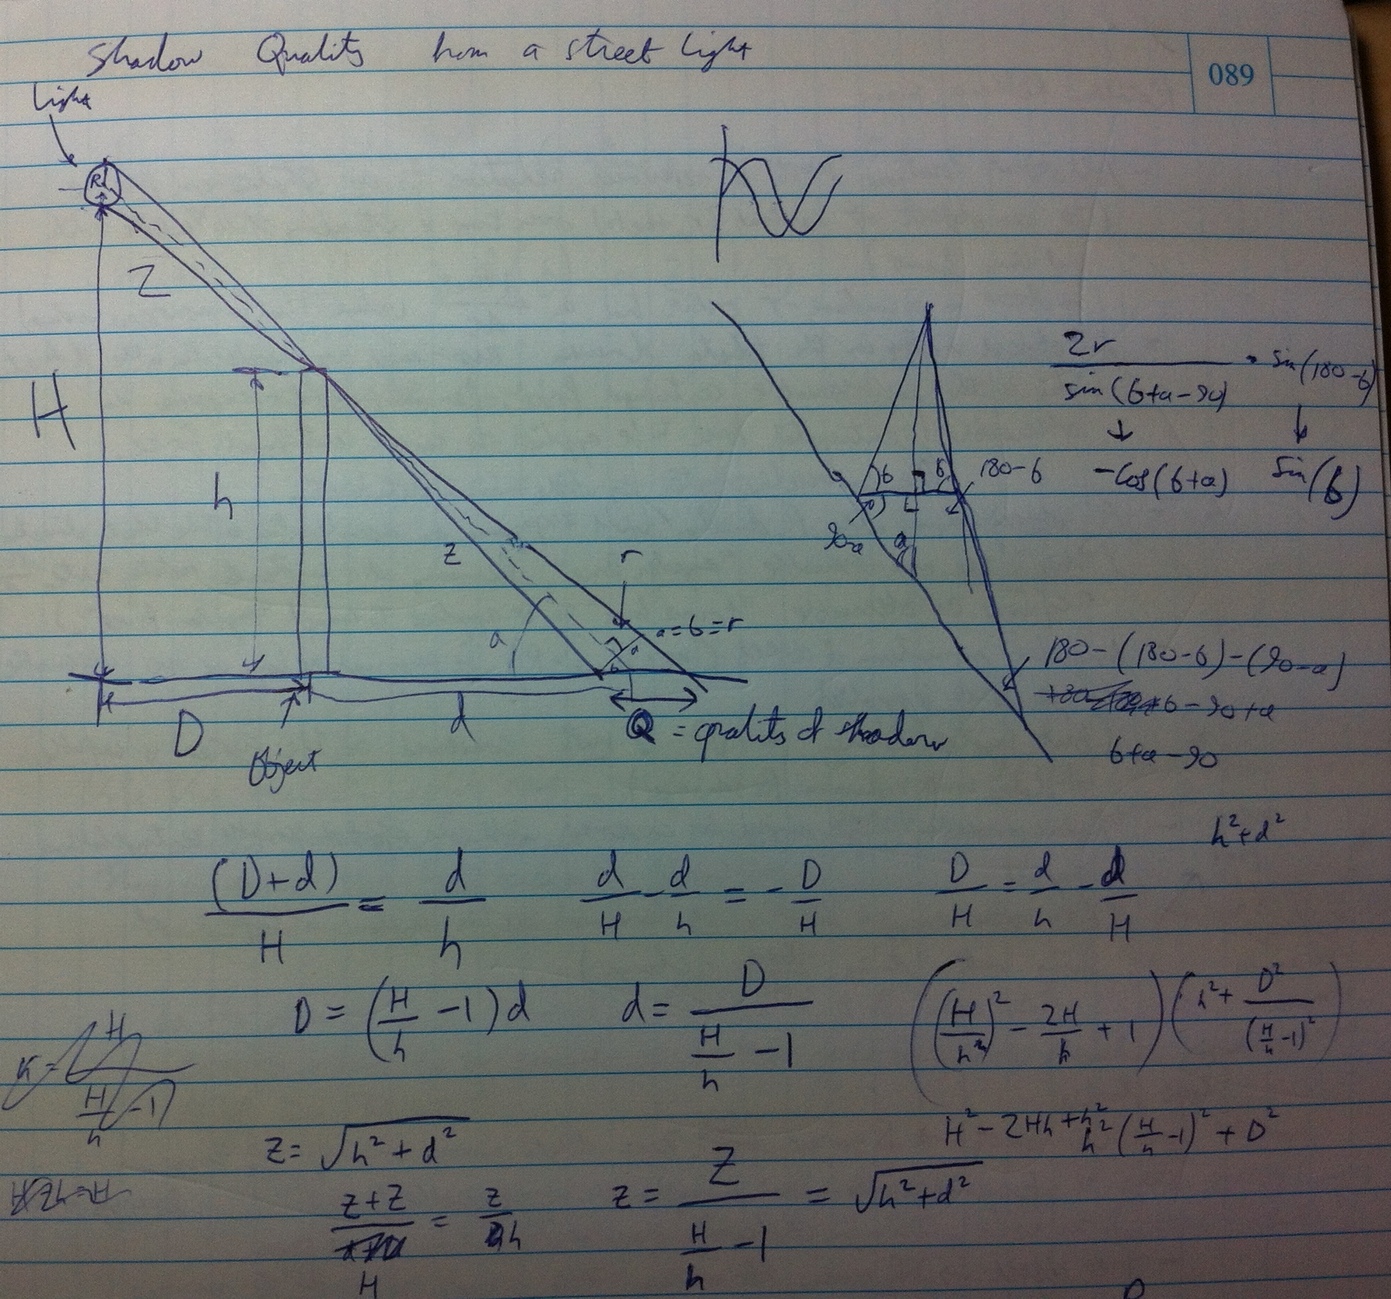 Shadow Quality from a street light
089
Light
R
Z
H
h
z
r
a
a = b = r
D
d
Object
Q = quality of shadow
b
b
180-b
90-a
a
2r / sin(b+a-90) · sin(180-b)
-cos(b+a)
sin(b)
180-(180-b)-(90-a)
b-90+a
b+a-90
h²+d²
(D+d)/H = d/h
d/H - d/h = -D/H
D/H = d/h - d/H
D = (H/h - 1)d
d = D/(H/h - 1)
((H/h)² - 2H/h + 1)(h² + D²/(H/h - 1)²)
K = H/(H/h - 1)
H² - 2Hh + h² (H/h - 1)² + D²
z = √(h²+d²)
(Z+z)/H = z/h
z = Z/(H/h - 1) = √(h²+d²)